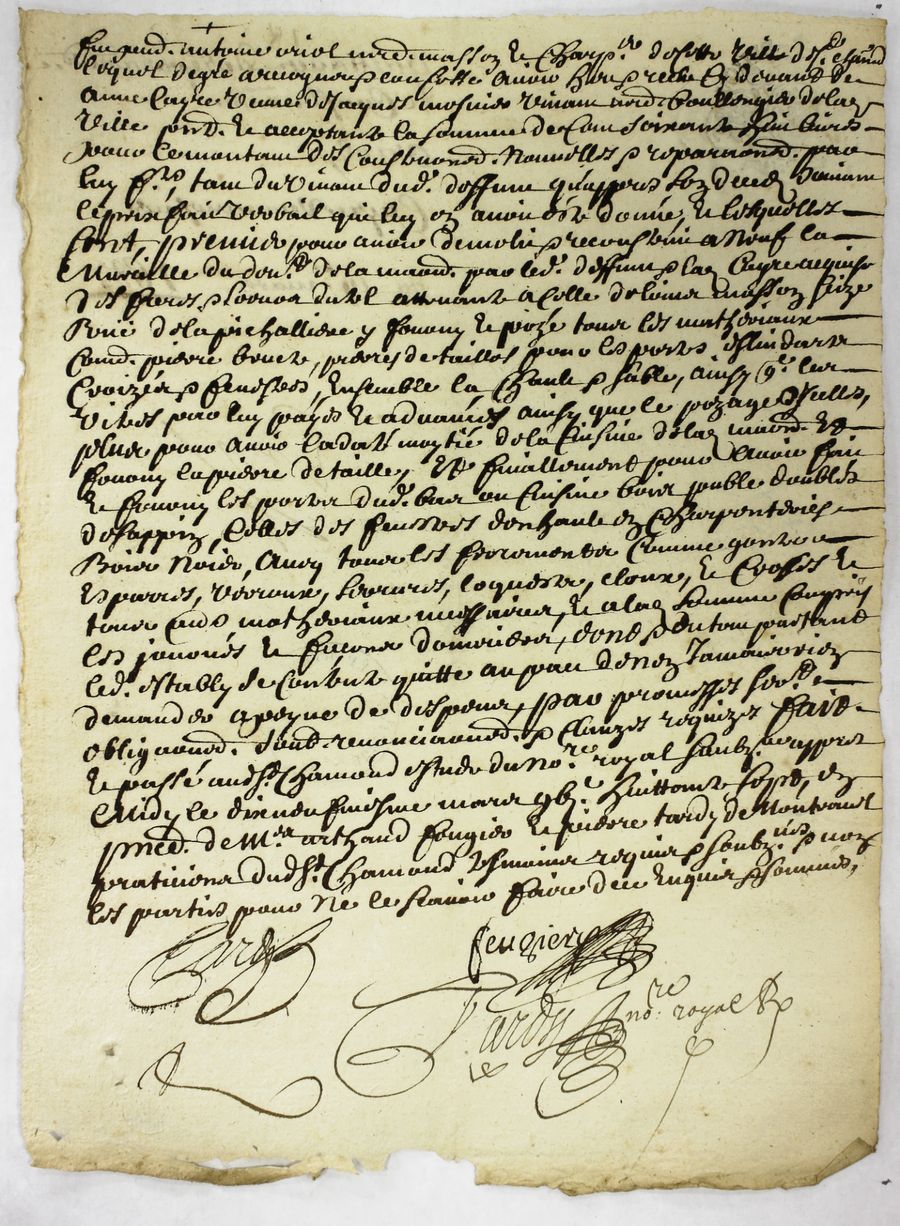 feu presd. antoine oriol md. masson & Charp.er de cette ville de St. chamd.
lequel de gré a recogneu & confesse avoir heu & receu cy devant de
anne Cayre veuve de Jacques mosnier vivant md. boullengier de lad.
ville presd. & acceptante la somme de Cent soixante huit livres
pour le montant des Constructions Nouvelles & reparaons. par
luy fes, tant du vivant dud. deffunt qu'appres son deceds suivant
le prix fait verbail qui luy en avoit esté donné, & lesquelles
sont, premier pour avoir demolie & reconstruit a Neuf la
Muraille du de la maison par led. deffunt & lad. Cayre acquise
des freres & soeurs attenante a Celle de masson size
Rue de la pichalliere y fourny & pozé tous les matheriaux
Comd. pierre brute, pierres de tailles pour les portes
Croizées & fenestres, Ensemble la Chaux & sable, ainsy que les
vitres par luy payés & advancées ainsy que le pozage d'Icelles,
plus pour avoir moytié de la Cuisine de lad. maison &
fourny la pierre de taille, Et finallement pour avoir fait
& fourny les portes dud. bas ou Cuisine bois double doublés
de sappin, Celles des fenestres d'en hault en Charpenterie
Bois Noir, Avec tous les ferrements Comme gonts
Esparres, verroux, serrures, loquets, cloux, & Crosses &
tous autres matheriaux necessaires, & a lad. somme Compris
les journés & façons d'ouvriers, dont & du tout partant
led. estably se Contente quitte au pact de n'en Jamais rien
demander a peyne de despens, par promesses serd.
obligaons. soubd. renonciaons. & Clauzes requizes fait
& passé aud St. Chamond estude du Nore. royal soubz.né appres
Midy le dixneufviesme mars gbic. huittante sept, en
presd. de Mres arthaud feugier & pierre tardy de Montravel
praticiens dud St. Chamond tesmoins requis & soubz.nés & non
les parties pour ne le scavoir faire de ce Enquis & sommés,
Tardy
feugier
Tardy nore. royal